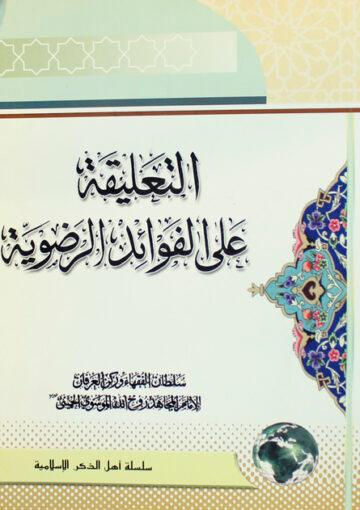 التعليقة
على الفوائد الرضوية
سلطان الفقهاء وركن العرفان
الإمام المجاهد روح الله الموسوي الخميني
سلسلة أهل الذكر الإسلامية